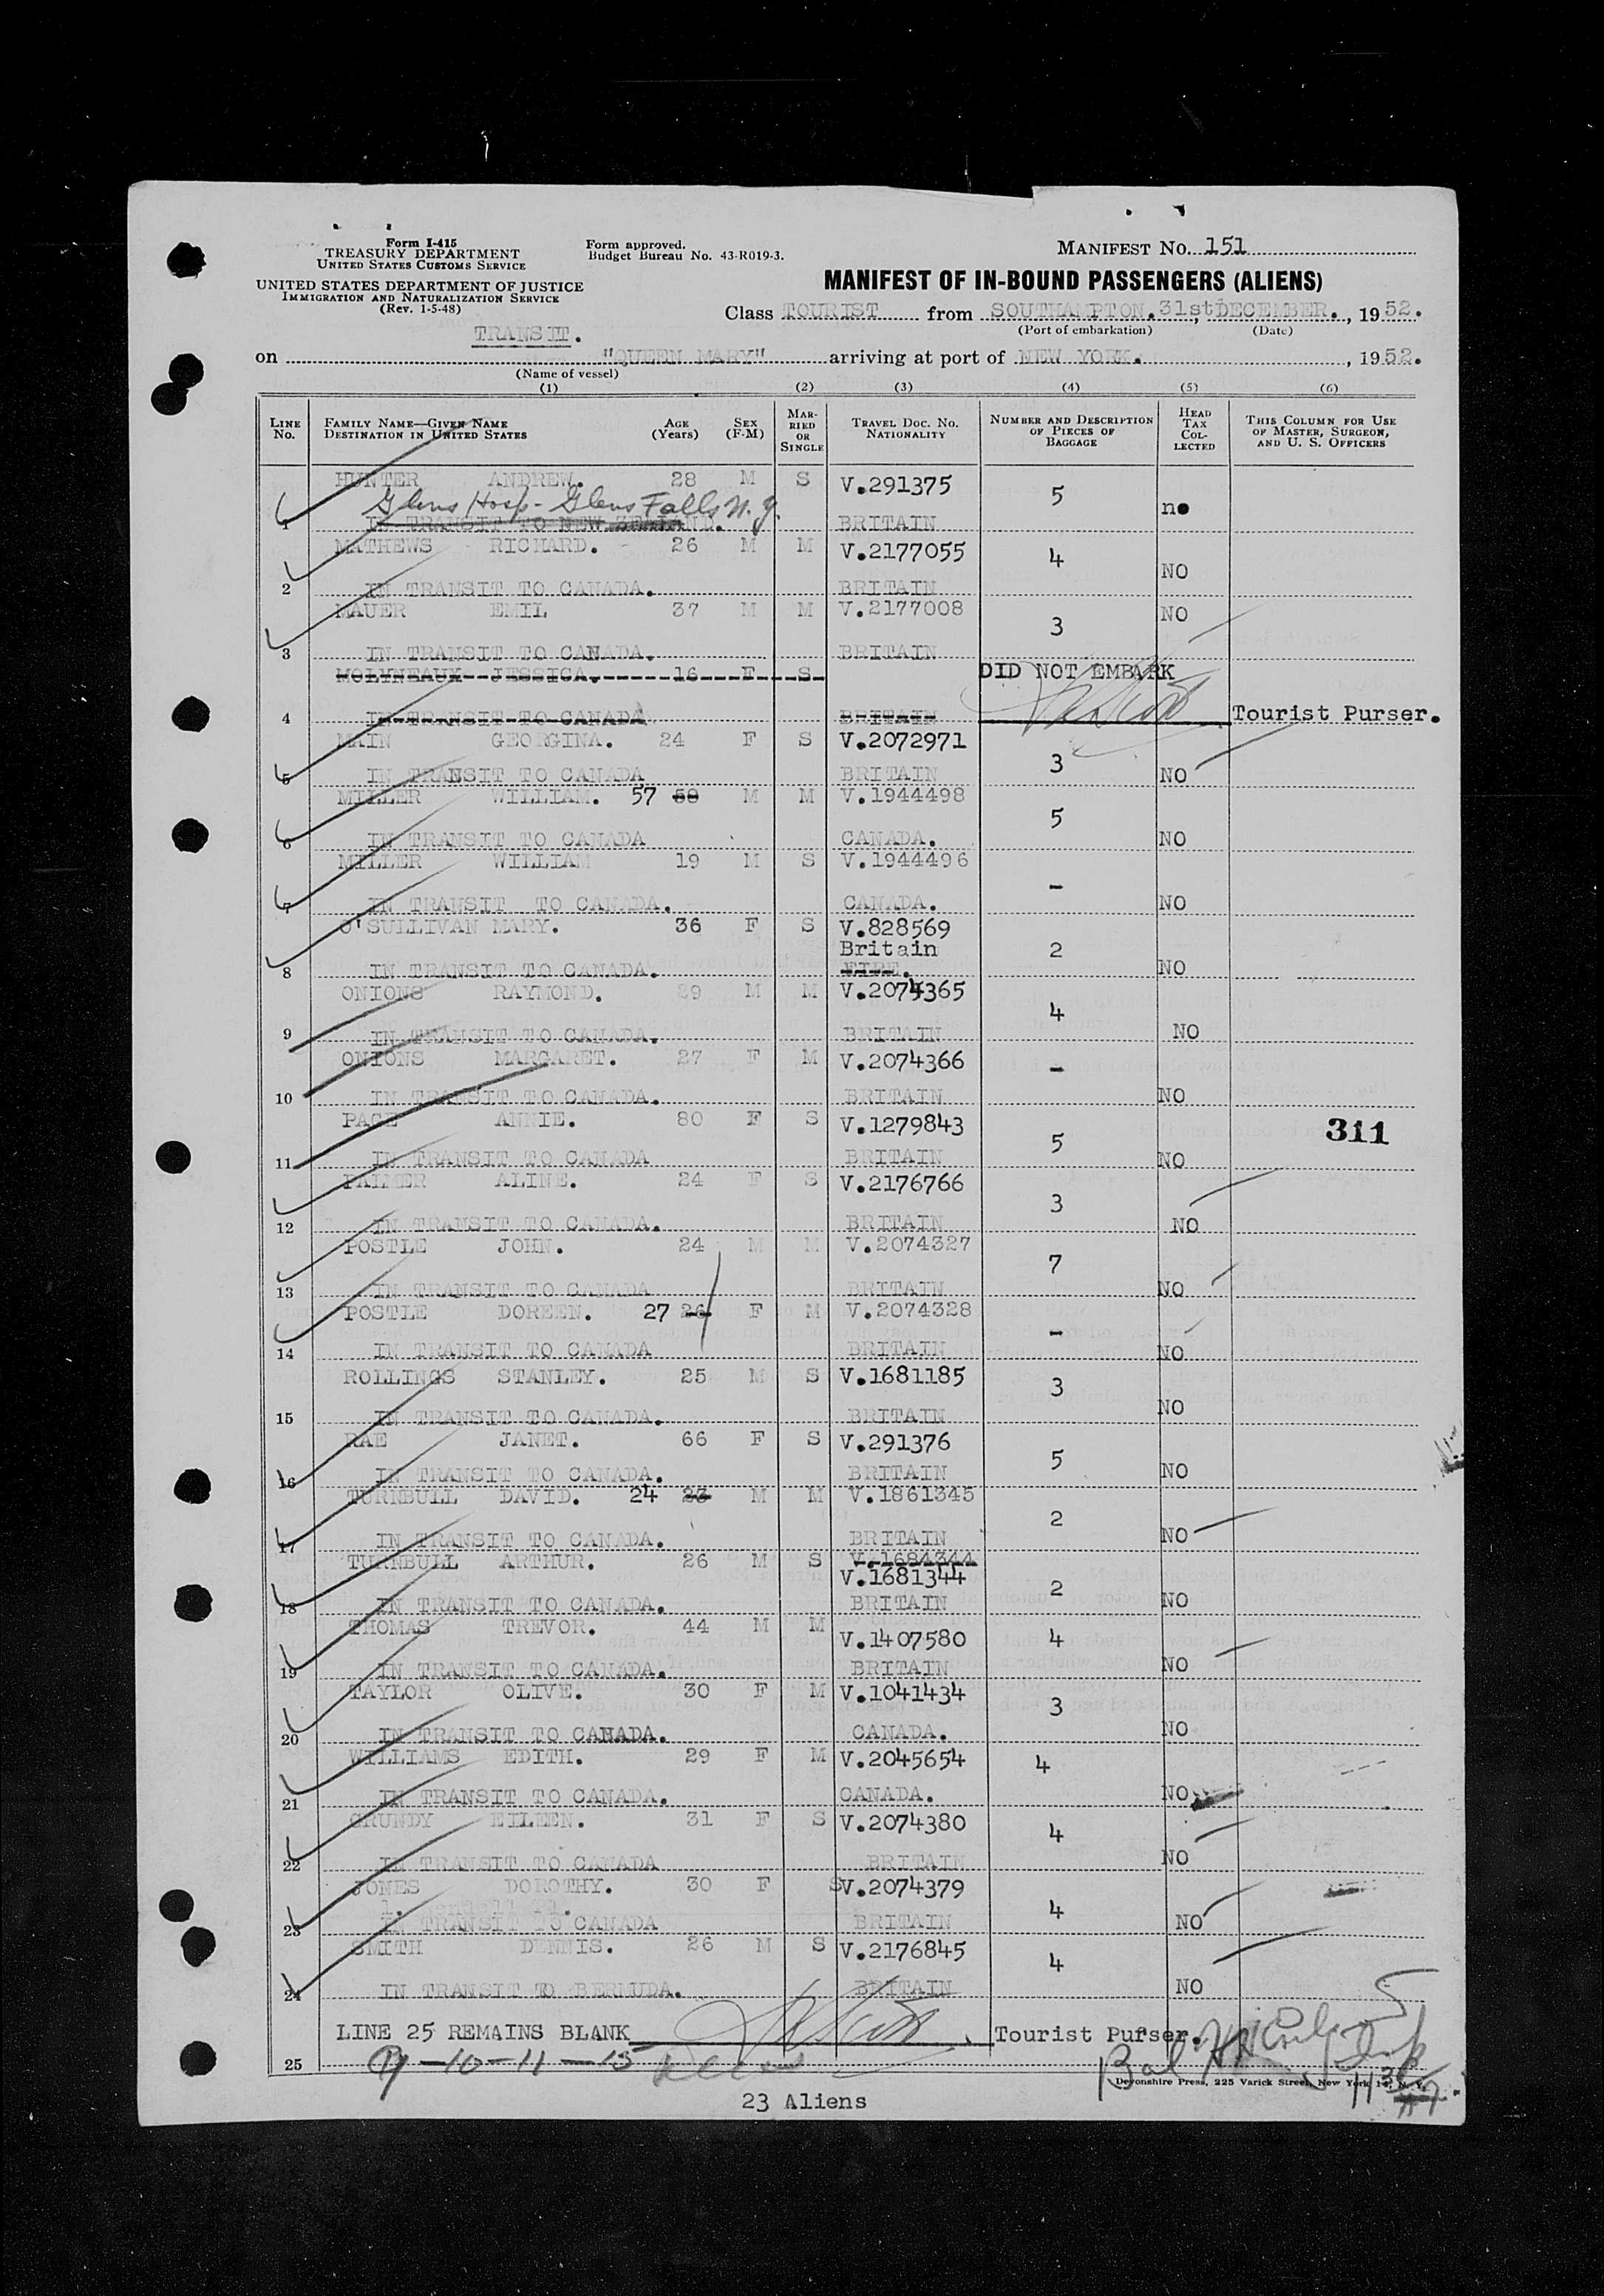 Form I-415
TREASURY DEPARTMENT
UNITED STATES CUSTOMS SERVICE
UNITED STATES DEPARTMENT OF JUSTICE
IMMIGRATION AND NATURALIZATION SERVICE
(Rev. 1-5-48)
Form approved.
Budget Bureau No. 43-R019-3.
MANIFEST No. 151
MANIFEST OF IN-BOUND PASSENGERS (ALIENS)
Class TOURIST from SOUTHAMPTON. 31st DECEMBER., 1952.
(Port of embarkation) (Date)
TRANSIT.
on "QUEEN MARY" arriving at port of NEW YORK. , 1952.
(Name of vessel)
(1) (2) (3) (4) (5) (6)
LINE No. FAMILY NAME—GIVEN NAME DESTINATION IN UNITED STATES AGE (Years) SEX (F-M) MARRIED OR SINGLE TRAVEL DOC. NO. NATIONALITY NUMBER AND DESCRIPTION OF PIECES OF BAGGAGE HEAD TAX COLLECTED THIS COLUMN FOR USE OF MASTER, SURGEON, AND U. S. OFFICERS
HUNTER ANDREW. 28 M S V.291375 5 no
Glens Hosp - Glens Falls N.Y.
1 IN TRANSIT TO NEW ZEALAND. BRITAIN
MATHEWS RICHARD. 26 M M V.2177055 4
2 IN TRANSIT TO CANADA. BRITAIN NO
MAUER EMIL 37 M M V.2177008 3 NO
3 IN TRANSIT TO CANADA. BRITAIN
MOLYNEAUX JESSICA. 16 F S DID NOT EMBARK
4 IN TRANSIT TO CANADA BRITAIN Tourist Purser.
MAIN GEORGINA. 24 F S V.2072971 3
5 IN TRANSIT TO CANADA BRITAIN NO
MILLER WILLIAM. 57 58 M M V.1944498 5
6 IN TRANSIT TO CANADA CANADA. NO
MILLER WILLIAM 19 M S V.1944496 -
7 IN TRANSIT TO CANADA. CANADA. NO
O'SULLIVAN MARY. 36 F S V.828569
Britain 2
8 IN TRANSIT TO CANADA. EIRE. NO
ONIONS RAYMOND. 29 M M V.2074365 4
9 IN TRANSIT TO CANADA. BRITAIN NO
ONIONS MARGARET. 27 F M V.2074366 -
10 IN TRANSIT TO CANADA. BRITAIN NO
PAGE ANNIE. 80 F S V.1279843 5 311
11 IN TRANSIT TO CANADA BRITAIN NO
PALMER ALINE. 24 F S V.2176766 3
12 IN TRANSIT TO CANADA. BRITAIN NO
POSTLE JOHN. 24 M M V.2074327 7
13 IN TRANSIT TO CANADA BRITAIN NO
POSTLE DOREEN. 27 26 F M V.2074328 -
14 IN TRANSIT TO CANADA BRITAIN NO
ROLLINGS STANLEY. 25 M S V.1681185 3
15 IN TRANSIT TO CANADA. BRITAIN NO
RAE JANET. 66 F S V.291376 5
16 IN TRANSIT TO CANADA. BRITAIN NO
TURNBULL DAVID. 24 23 M M V.1861345 2
17 IN TRANSIT TO CANADA. BRITAIN NO
TURNBULL ARTHUR. 26 M S V.1684344
V.1681344 2
18 IN TRANSIT TO CANADA. BRITAIN NO
THOMAS TREVOR. 44 M M V.1407580 4
19 IN TRANSIT TO CANADA. BRITAIN NO
TAYLOR OLIVE. 30 F M V.1041434 3
20 IN TRANSIT TO CANADA. CANADA. NO
WILLIAMS EDITH. 29 F M V.2045654 4
21 IN TRANSIT TO CANADA. CANADA. NO
GRUNDY EILEEN. 31 F S V.2074380 4
22 IN TRANSIT TO CANADA BRITAIN NO
JONES DOROTHY. 30 F S V.2074379 4
23 IN TRANSIT TO CANADA BRITAIN NO
SMITH DENNIS. 26 M S V.2176845 4
24 IN TRANSIT TO BERMUDA. BRITAIN NO
LINE 25 REMAINS BLANK Tourist Purser.
25 9-10-11-15
Devonshire Press, 225 Varick Street, New York 14, N. Y.
23 Aliens